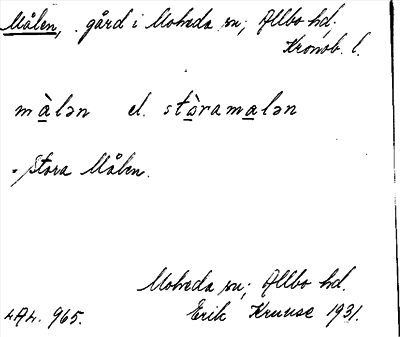 Målen, gård i Moheda sn; Allbo hd.
Kronob. l.
màlən el. stòramalən
= Stora Målen.
Moheda sn; Allbo hd.
Erik Kruuse 1931.
LAL. 965.